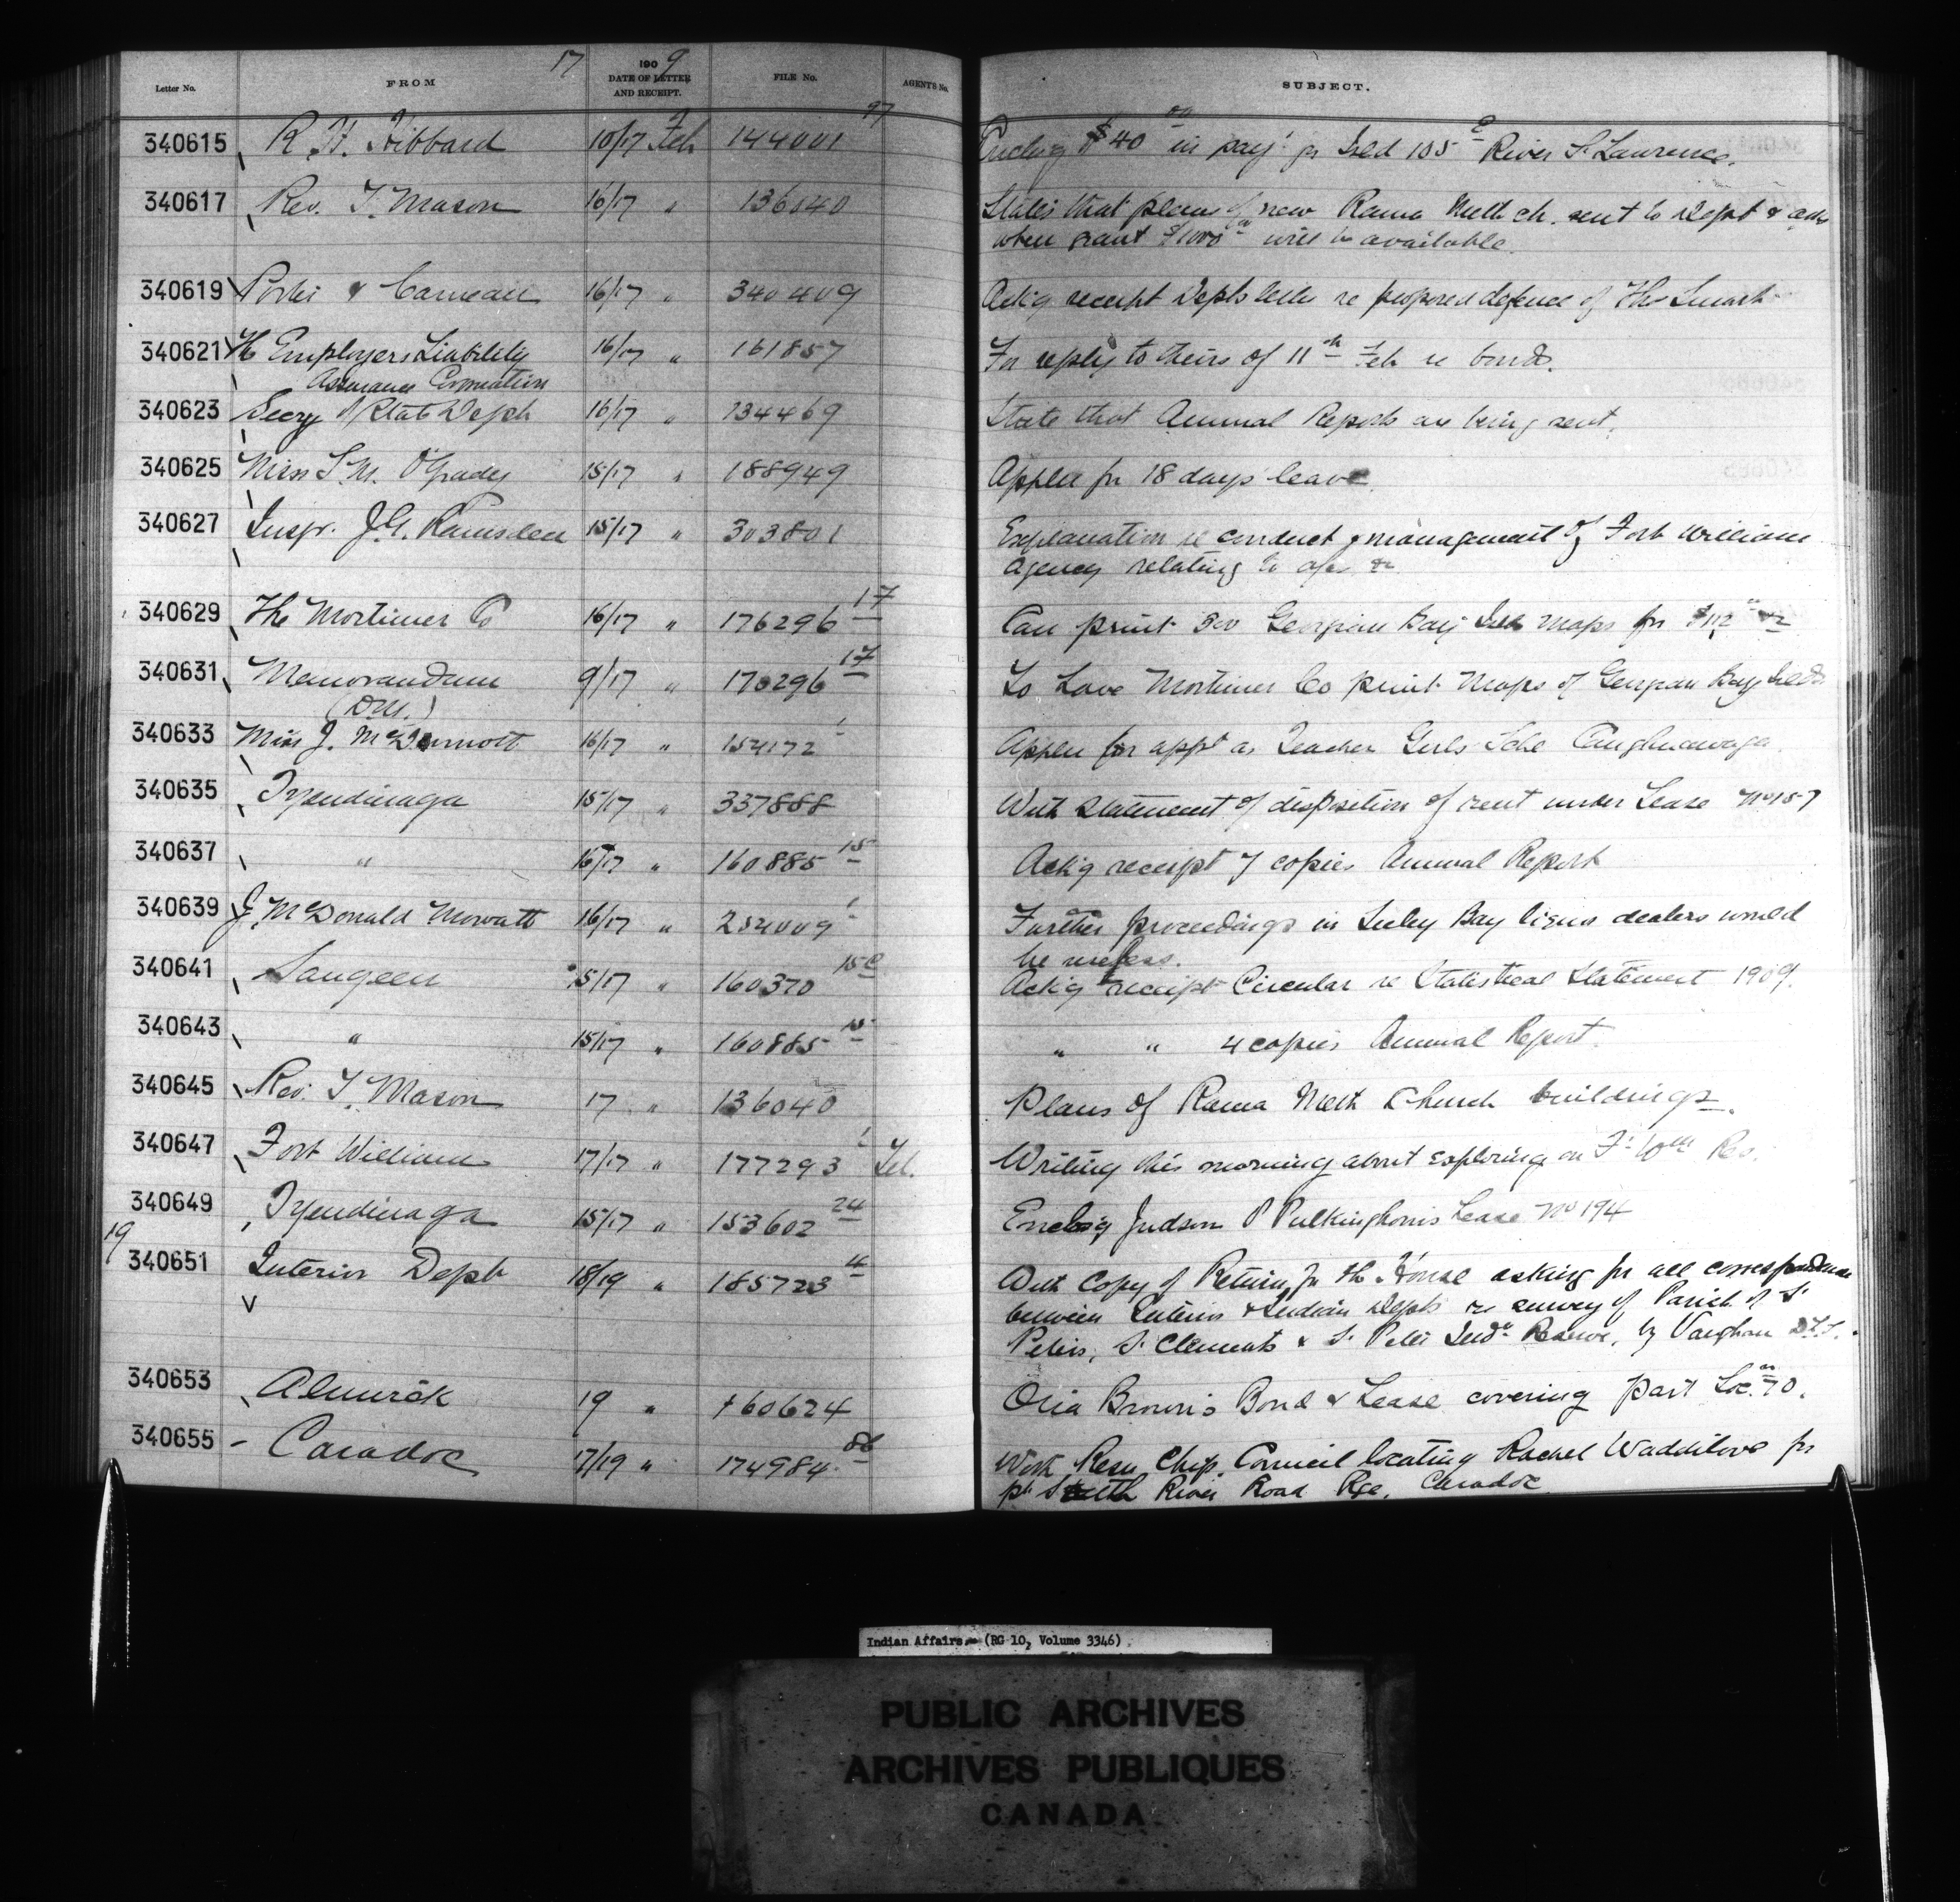 17 190 9
Letter No. FROM DATE OF LETTER AND RECEIPT. FILE No. AGENTS No. SUBJECT.
340615 R. H. Hibbard 10/17 Feb 144001 97 Enclosg $40 00 in pay't for Isld 105 e River St. Lawrence.
340617 Rev. T. Mason 16/17 " 136040 States that plans of new Rama Meth ch. sent to Dept & asks
when grant $1000 00 will be available.
340619 & 16/17 " 340409 Ack'g receipt Depts letter re proposed defence of Thos Smart
340621 The Employers Liability 16/17 " 161857 For reply to theirs of 11th Feb re bond.
Assurance Corporation
340623 Secy of State Dept 16/17 " 134469 State that Annual Reports are being sent.
340625 Miss S. M. O'Grady 15/17 " 188949 Applies for 18 days' leave
340627 Inspr. J. G. Ramsden 15/17 " 303801 Explanation re conduct & management of Fort William
Agency relating to
340629 The Mortimer Co 16/17 " 176296 17 Can print 300 Georgian Bay Isld Maps for $112
340631 Memorandum 9/17 " 176296 17 To have Mortimer Co print Maps of Georgian Bay Islds
(D.M.)
340633 Miss J. McDermott 16/17 " 154172 1 Applies for appt as Teacher Girls Schl Caughnawaga.
340635 Tyendinaga 15/17 " 337888 With statement of disposition of rent under Lease No 157
340637 " 16/17 " 160885 15 Ack'g receipt 7 copies Annual Report
340639 J. McDonald Mowatt 16/17 " 254009 1 Further proceedings in Bay liquor dealers would
be useless.
340641 Saugeen 15/17 " 160370 15 c Ack'g receipt Circular re Statistical Statement 1909.
340643 " 15/17 " 160885 15 " " 4 copies Annual Report.
340645 Rev. T. Mason 17 " 136040 Plans of Rama Meth Church buildings.
340647 Fort William 17/17 " 177293 1 Tel. Writing this morning about exploring on Ft Wm Res.
340649 Tyendinaga 15/17 " 153602 24 Enclos'g Judson P Pulkinghorn's Lease No 194
19
340651 Interior Dept 18/19 " 185723 4 With Copy of Return for the House asking for all correspondence
between Interior & Indian Depts re survey of Parish of St
Peters, St Clements & St Peter Inds Reserve, by Vaughan D.L.S.
340653 Alnwick 19 " 160624 Brown's Bond & Lease covering part Loc. 70.
340655 - Caradoc 17/19 " 174984 86 With Resn Chip. Council locating Rachel Waddilove for
pt South River Road Rge, Caradoc
Indian Affairs. (RG 10, Volume 3346)
PUBLIC ARCHIVES
ARCHIVES PUBLIQUES
CANADA